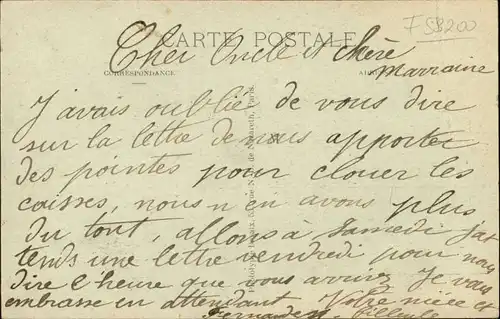 F 58200
CARTE POSTALE
Cher Oncle et chère
CORRESPONDANCE
Marraine
J'avais oublié de vous dire
sur la lettre de nous apporter
des pointes pour clouer les
caisses, nous n'en avons plus
du tout, allons à Samedi j'at
tends une lettre vendredi pour nous
dire l'heure que vous arrivez. Je vous
embrasse en attendant Votre nièce et
Fernande filleule